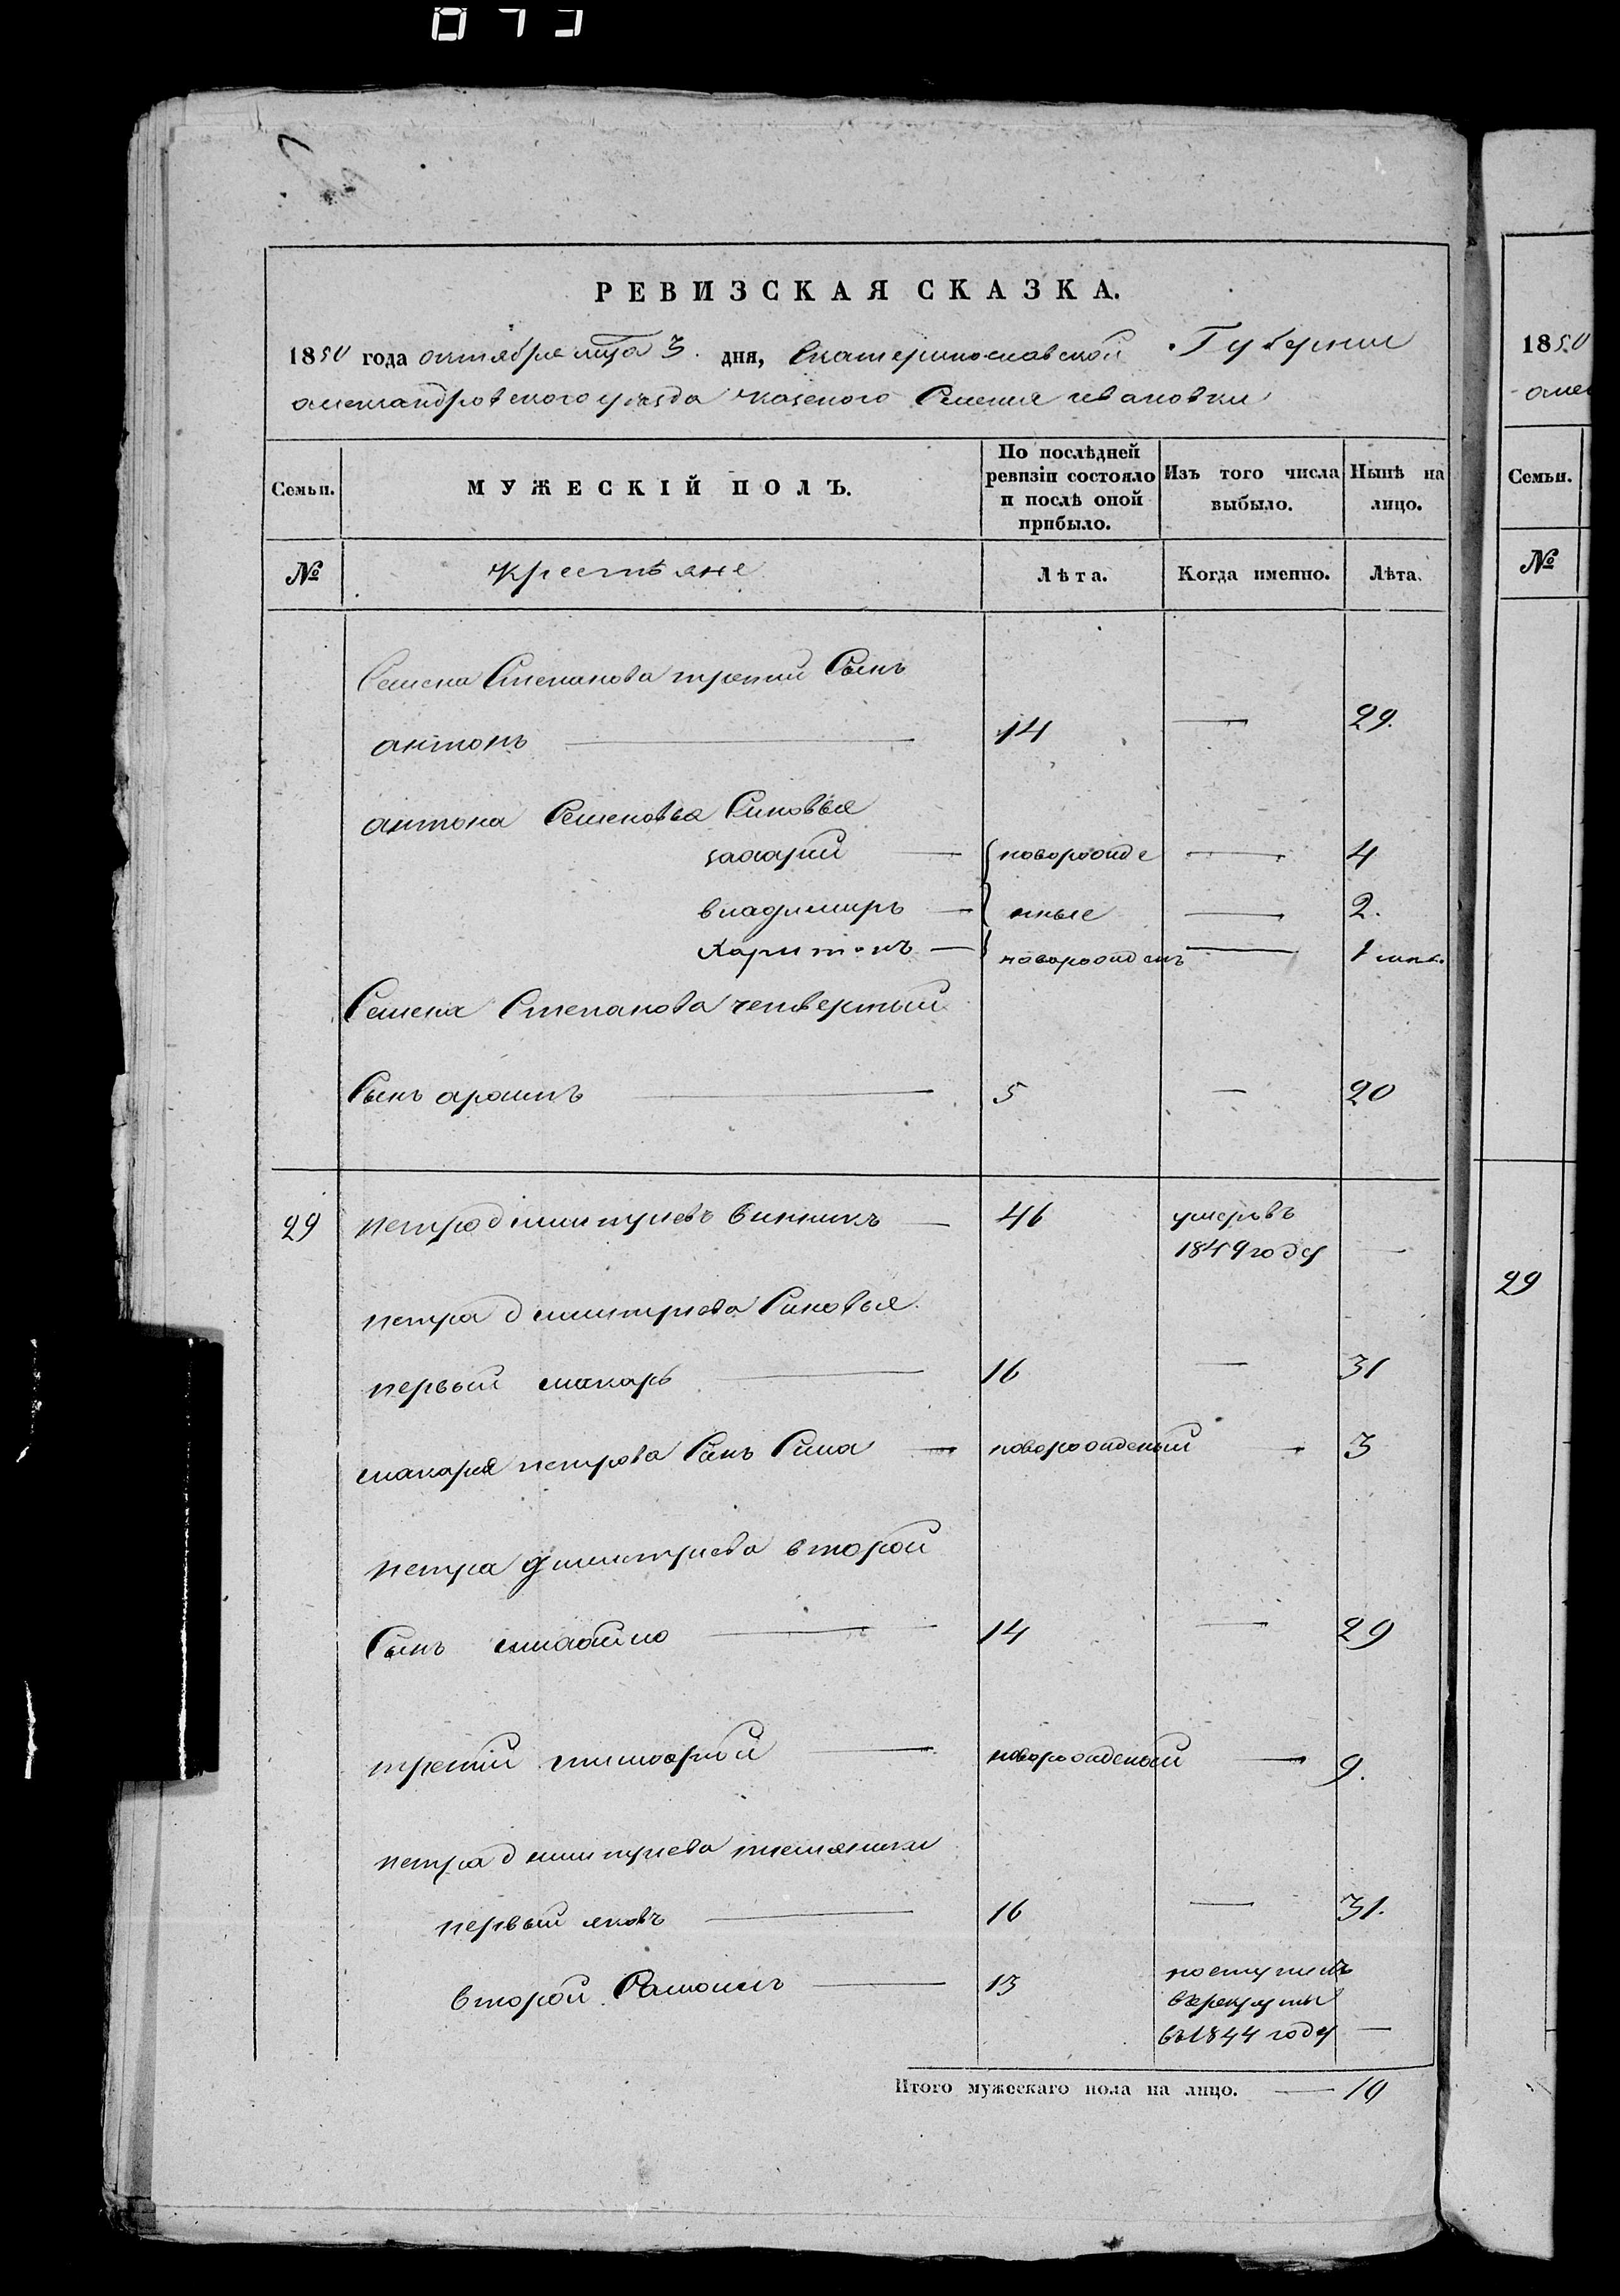 РЕВИЗСКАЯ СКАЗКА.
1850 года октября мца 3. дня, Екатеринославской Губернии
александровского уезда казеного Селения ивановки
Семьи. МУЖЕСКІЙ ПОЛЪ. По послѣдней ревизіи состояло и послѣ оной прибыло. Изъ того числа выбыло. Нынѣ на лицо.
№ крестьяне Лѣта. Когда именно. Лѣта.
Семена Степанова третий Сынъ
антонъ — 14 — 29.
антона Семеновва Синоввя
захарий — новорожде — 4
владимиръ — нные — 2.
Харитонъ — новорожденъ — 1
Семена Степанова четвертый
Сынъ 5 — 20
29 петро дмитриевъ винникъ — 46 умеръ въ
1849 году —
петра дмитриева Синовья.
первый макаръ — 16 — 31
макаря петрова Сынъ Сила — новорожденый — 3
петра дмитриева второй
Сынъ михайло — 14 — 29
третий григорий — новорожденый — 9.
петра дмитриева племяники
первый яковъ — 16 — 31.
второй 13 поступилъ
врекруты
въ 1844 году —
Итого мужескаго пола на лицо. — 10
1850
Семьи.
№
29